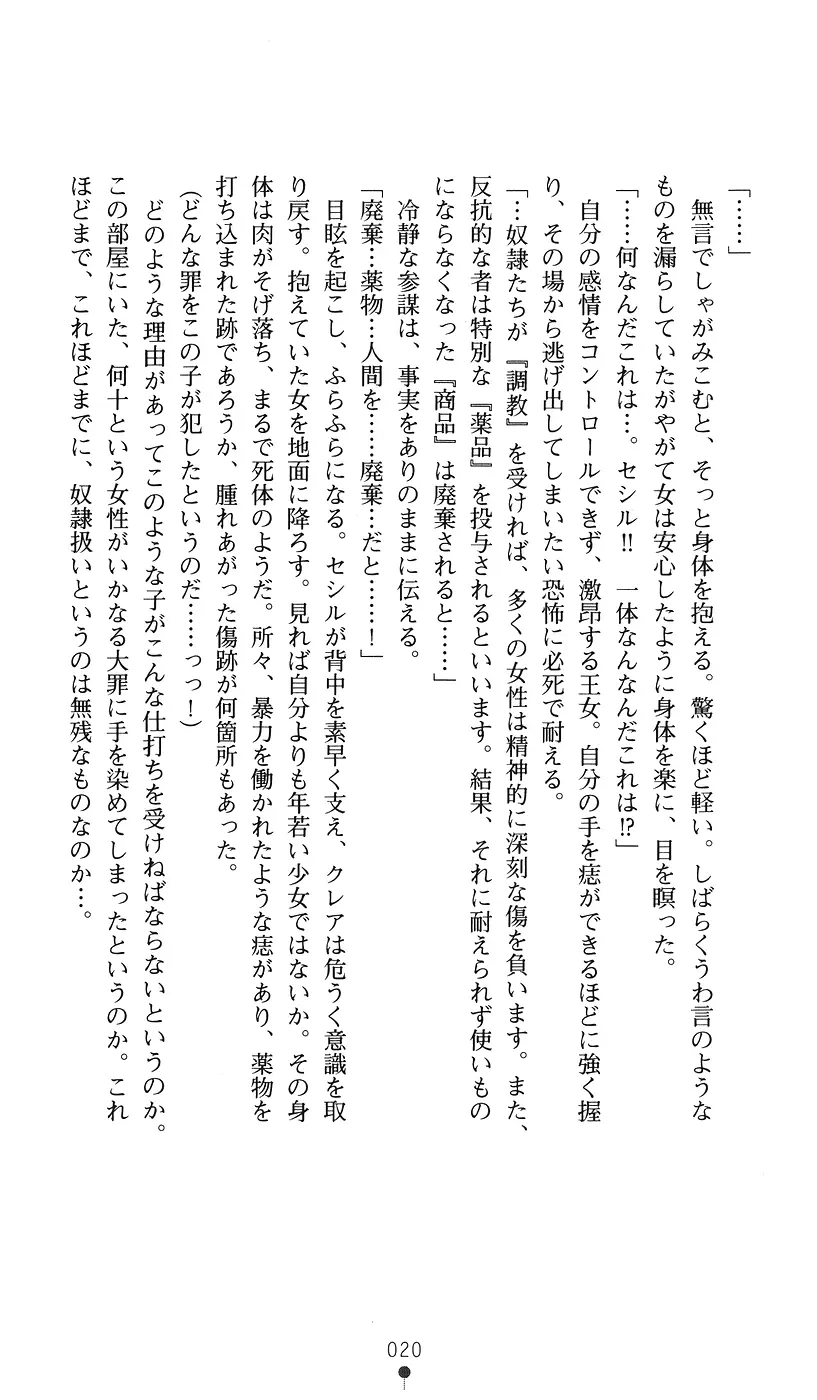 「……」
　無言でしゃがみこむと、そっと身体を抱える。驚くほど軽い。しばらくうわ言のような
ものを漏らしていたがやがて女は安心したように身体を楽に、目を瞑った。
「……何なんだこれは…。セシル!!　一体なんなんだこれは!?」
　自分の感情をコントロールできず、激昂する王女。自分の手を痣ができるほどに強く握
り、その場から逃げ出してしまいたい恐怖に必死で耐える。
「…奴隷たちが『調教』を受ければ、多くの女性は精神的に深刻な傷を負います。また、
反抗的な者は特別な『薬品』を投与されるといいます。結果、それに耐えられず使いもの
にならなくなった『商品』は廃棄されると……」
　冷静な参謀は、事実をありのままに伝える。
「廃棄…薬物…人間を……廃棄…だと……！」
　目眩を起こし、ふらふらになる。セシルが背中を素早く支え、クレアは危うく意識を取
り戻す。抱えていた女を地面に降ろす。見れば自分よりも年若い少女ではないか。その身
体は肉がそげ落ち、まるで死体のようだ。所々、暴力を働かれたような痣があり、薬物を
打ち込まれた跡であろうか、腫れあがった傷跡が何箇所もあった。
（どんな罪をこの子が犯したというのだ……っっ！）
　どのような理由があってこのような子がこんな仕打ちを受けねばならないというのか。
この部屋にいた、何十という女性がいかなる大罪に手を染めてしまったというのか。これ
ほどまで、これほどまでに、奴隷扱いというのは無残なものなのか…。
020